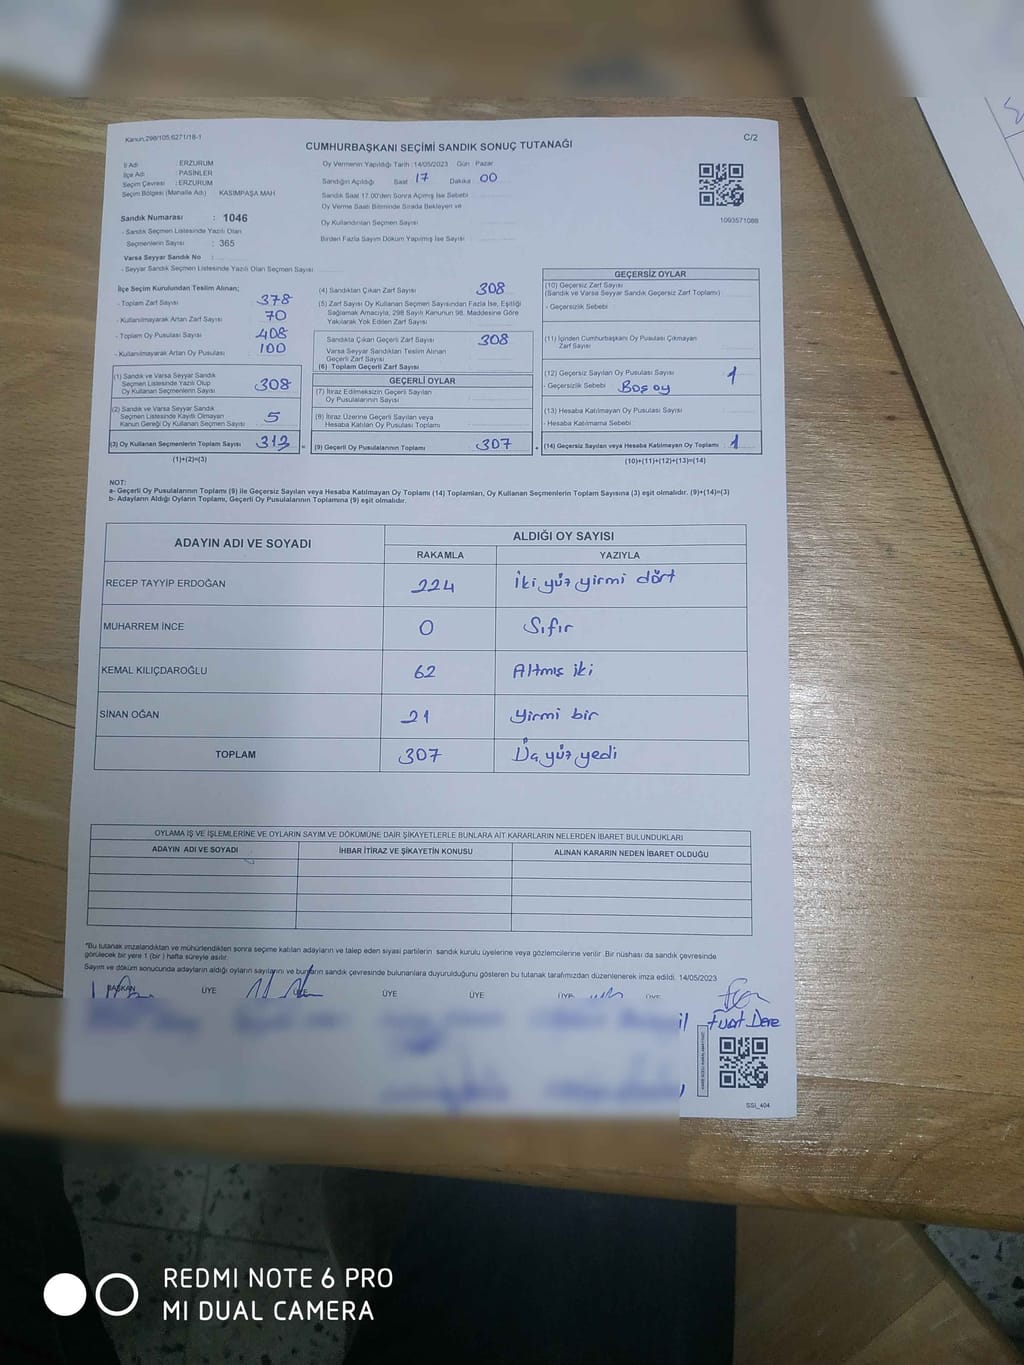 Kanun,298/105,6271/18-1
C/2
CUMHURBAŞKANI SEÇİMİ SANDIK SONUÇ TUTANAĞI
İl Adı : ERZURUM
İlçe Adı : PASİNLER
Seçim Çevresi : ERZURUM
Seçim Bölgesi (Mahalle Adı) KASIMPAŞA MAH
Sandık Numarası : 1046
- Sandık Seçmen Listesinde Yazılı Olan
Seçmenlerin Sayısı : 365
Varsa Seyyar Sandık No :
- Seyyar Sandık Seçmen Listesinde Yazılı Olan Seçmen Sayısı
Oy Vermenin Yapıldığı Tarih : 14/05/2023 Gün : Pazar
Sandığın Açıldığı Saat 17 Dakika 00
Sandık Saat 17.00'den Sonra Açımış İse Sebebi
Oy Verme Saati Bitiminde Sırada Bekleyen ve
Oy Kullandırılan Seçmen Sayısı
Birden Fazla Sayım Döküm Yapılmış İse Sayısı
1093571088
İlçe Seçim Kurulundan Teslim Alınan;
- Toplam Zarf Sayısı 378
- Kullanılmayarak Artan Zarf Sayısı 70
- Toplam Oy Pusulası Sayısı 408
- Kullanılmayarak Artan Oy Pusulası 100
(1) Sandık ve Varsa Seyyar Sandık
Seçmen Listesinde Yazılı Olup
Oy Kullanan Seçmenlerin Sayısı 308
(2) Sandık ve Varsa Seyyar Sandık
Seçmen Listesinde Kayıtlı Olmayan
Kanun Gereği Oy Kullanan Seçmen Sayısı 5
(3) Oy Kullanan Seçmenlerin Toplam Sayısı 313
(1)+(2)=(3)
(4) Sandıktan Çıkan Zarf Sayısı 308
(5) Zarf Sayısı Oy Kullanan Seçmen Sayısından Fazla İse, Eşitliği
Sağlamak Amacıyla, 298 Sayılı Kanunun 98. Maddesine Göre
Yakılarak Yok Edilen Zarf Sayısı
Sandıkta Çıkan Geçerli Zarf Sayısı 308
Varsa Seyyar Sandıktan Teslim Alınan
Geçerli Zarf Sayısı
(6) Toplam Geçerli Zarf Sayısı
GEÇERLİ OYLAR
(7) İtiraz Edilmeksizin Geçerli Sayılan
Oy Pusulalarının Sayısı
(8) İtiraz Üzerine Geçerli Sayılan veya
Hesaba Katılan Oy Pusulası Toplamı
(9) Geçerli Oy Pusulalarının Toplamı 307
GEÇERSİZ OYLAR
(10) Geçersiz Zarf Sayısı
(Sandık ve Varsa Seyyar Sandık Geçersiz Zarf Toplamı)
- Geçersizlik Sebebi
(11) İçinden Cumhurbaşkanı Oy Pusulası Çıkmayan
Zarf Sayısı
(12) Geçersiz Sayılan Oy Pusulası Sayısı 1
- Geçersizlik Sebebi Boş oy
(13) Hesaba Katılmayan Oy Pusulası Sayısı
- Hesaba Katılmama Sebebi
(14) Geçersiz Sayılan veya Hesaba Katılmayan Oy Toplamı 1
(10)+(11)+(12)+(13)=(14)
NOT:
a- Geçerli Oy Pusulalarının Toplamı (9) ile Geçersiz Sayılan veya Hesaba Katılmayan Oy Toplamı (14) Toplamları, Oy Kullanan Seçmenlerin Toplam Sayısına (3) eşit olmalıdır. (9)+(14)=(3)
b- Adayların Aldığı Oyların Toplamı, Geçerli Oy Pusulalarının Toplamına (9) eşit olmalıdır.
ADAYIN ADI VE SOYADI
ALDIĞI OY SAYISI
RAKAMLA YAZIYLA
RECEP TAYYİP ERDOĞAN 224 İki yüz yirmi dört
MUHARREM İNCE 0 Sıfır
KEMAL KILIÇDAROĞLU 62 Altmış iki
SİNAN OĞAN 21 yirmi bir
TOPLAM 307 Üç yüz yedi
OYLAMA İŞ VE İŞLEMLERİNE VE OYLARIN SAYIM VE DÖKÜMÜNE DAİR ŞİKAYETLERLE BUNLARA AİT KARARLARIN NELERDEN İBARET BULUNDUKLARI
ADAYIN ADI VE SOYADI İHBAR İTİRAZ VE ŞİKAYETİN KONUSU ALINAN KARARIN NEDEN İBARET OLDUĞU
*Bu tutanak imzalandıktan ve mühürlendikten sonra seçime katılan adayların ve talep eden siyasi partilerin sandık kurulu üyelerine veya gözlemcilerine verilir. Bir nüshası da sandık çevresinde
görülecek bir yere 1 (bir ) hafta süreyle asılır.
Sayım ve döküm sonucunda adayların aldığı oyların sayılarını ve bunların sandık çevresinde bulunanlara duyurulduğunu gösteren bu tutanak tarafımızdan düzenlenerek imza edildi. 14/05/2023
BAŞKAN ÜYE ÜYE ÜYE ÜYE ÜYE ÜYE
Fuat Dere
SSİ_404
REDMI NOTE 6 PRO
MI DUAL CAMERA